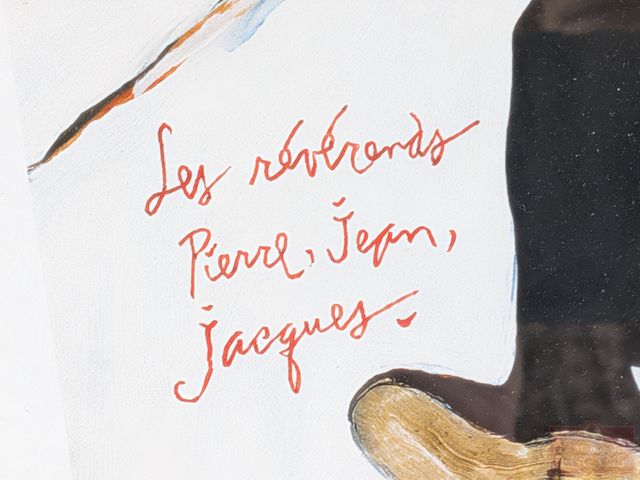 Les révérends
Pierre, Jean,
Jacques.